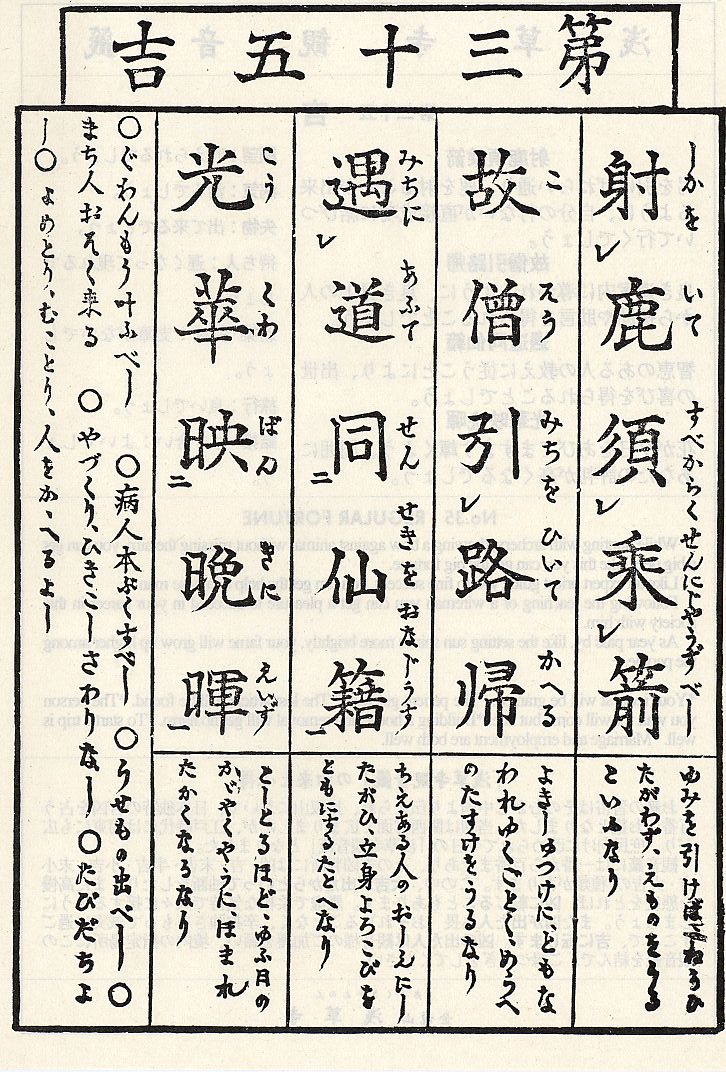 第三十五吉
しかをいて すべからくせんにじやうずべし
射鹿レ須レ乗レ箭
ゆみを引けば、ねらひ
たがわず、えものをとる
といふなり
こ そう みちを ひいて かへる
故僧引レ路帰
よきみちつけに、ともな
われゆくごとく、めうへ
のたすけをうるなり
みちに あふて せん せきを おなじうす
遇レ道同二仙籍一
ちえある人のおしえにし
たがひ、立身よろこびを
ともにするたとへなり
こう くわ ばん きに えいず
光華映二晩暉一
としとるほど、ゆふ日の
かゞやくやうに、ほまれ
たかくなるなり
○ぐわんもう叶ふべし ○病人本ぶくすべし ○うせもの出べし ○
まち人おそく来る ○やづくり、ひきこしさわりなし ○たびだちよ
し○よめとり、むことり、人をかゝへるよし